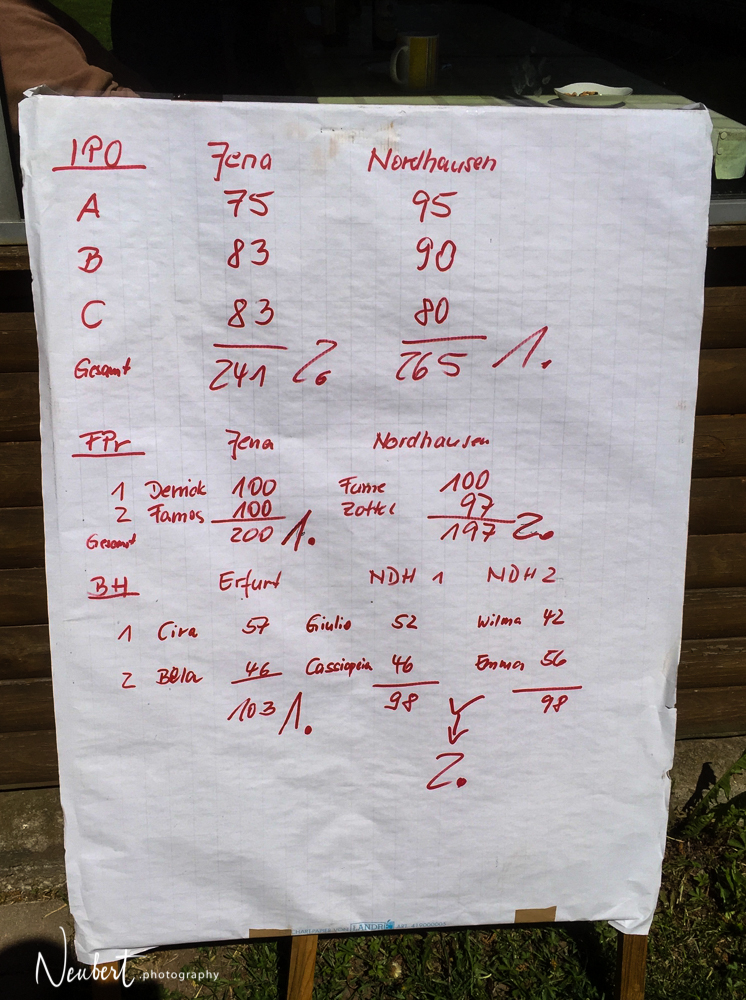 IPO Jena Nordhausen
A 75 95
B 83 90
C 83 80
Gesamt 241 2. 265 1.
FPr Jena Nordhausen
1 Derrick 100 Fame 100
2 Famos 100 Zottel 97
Gesamt 200 1. 197 2.
BH Erfurt NDH 1 NDH 2
1 Cira 57 Giulio 52 Wilma 42
2 Béla 46 Cassiopeia 46 Emma 56
103 1. 98 98
2.
LANDRÉ
Neubert.photography